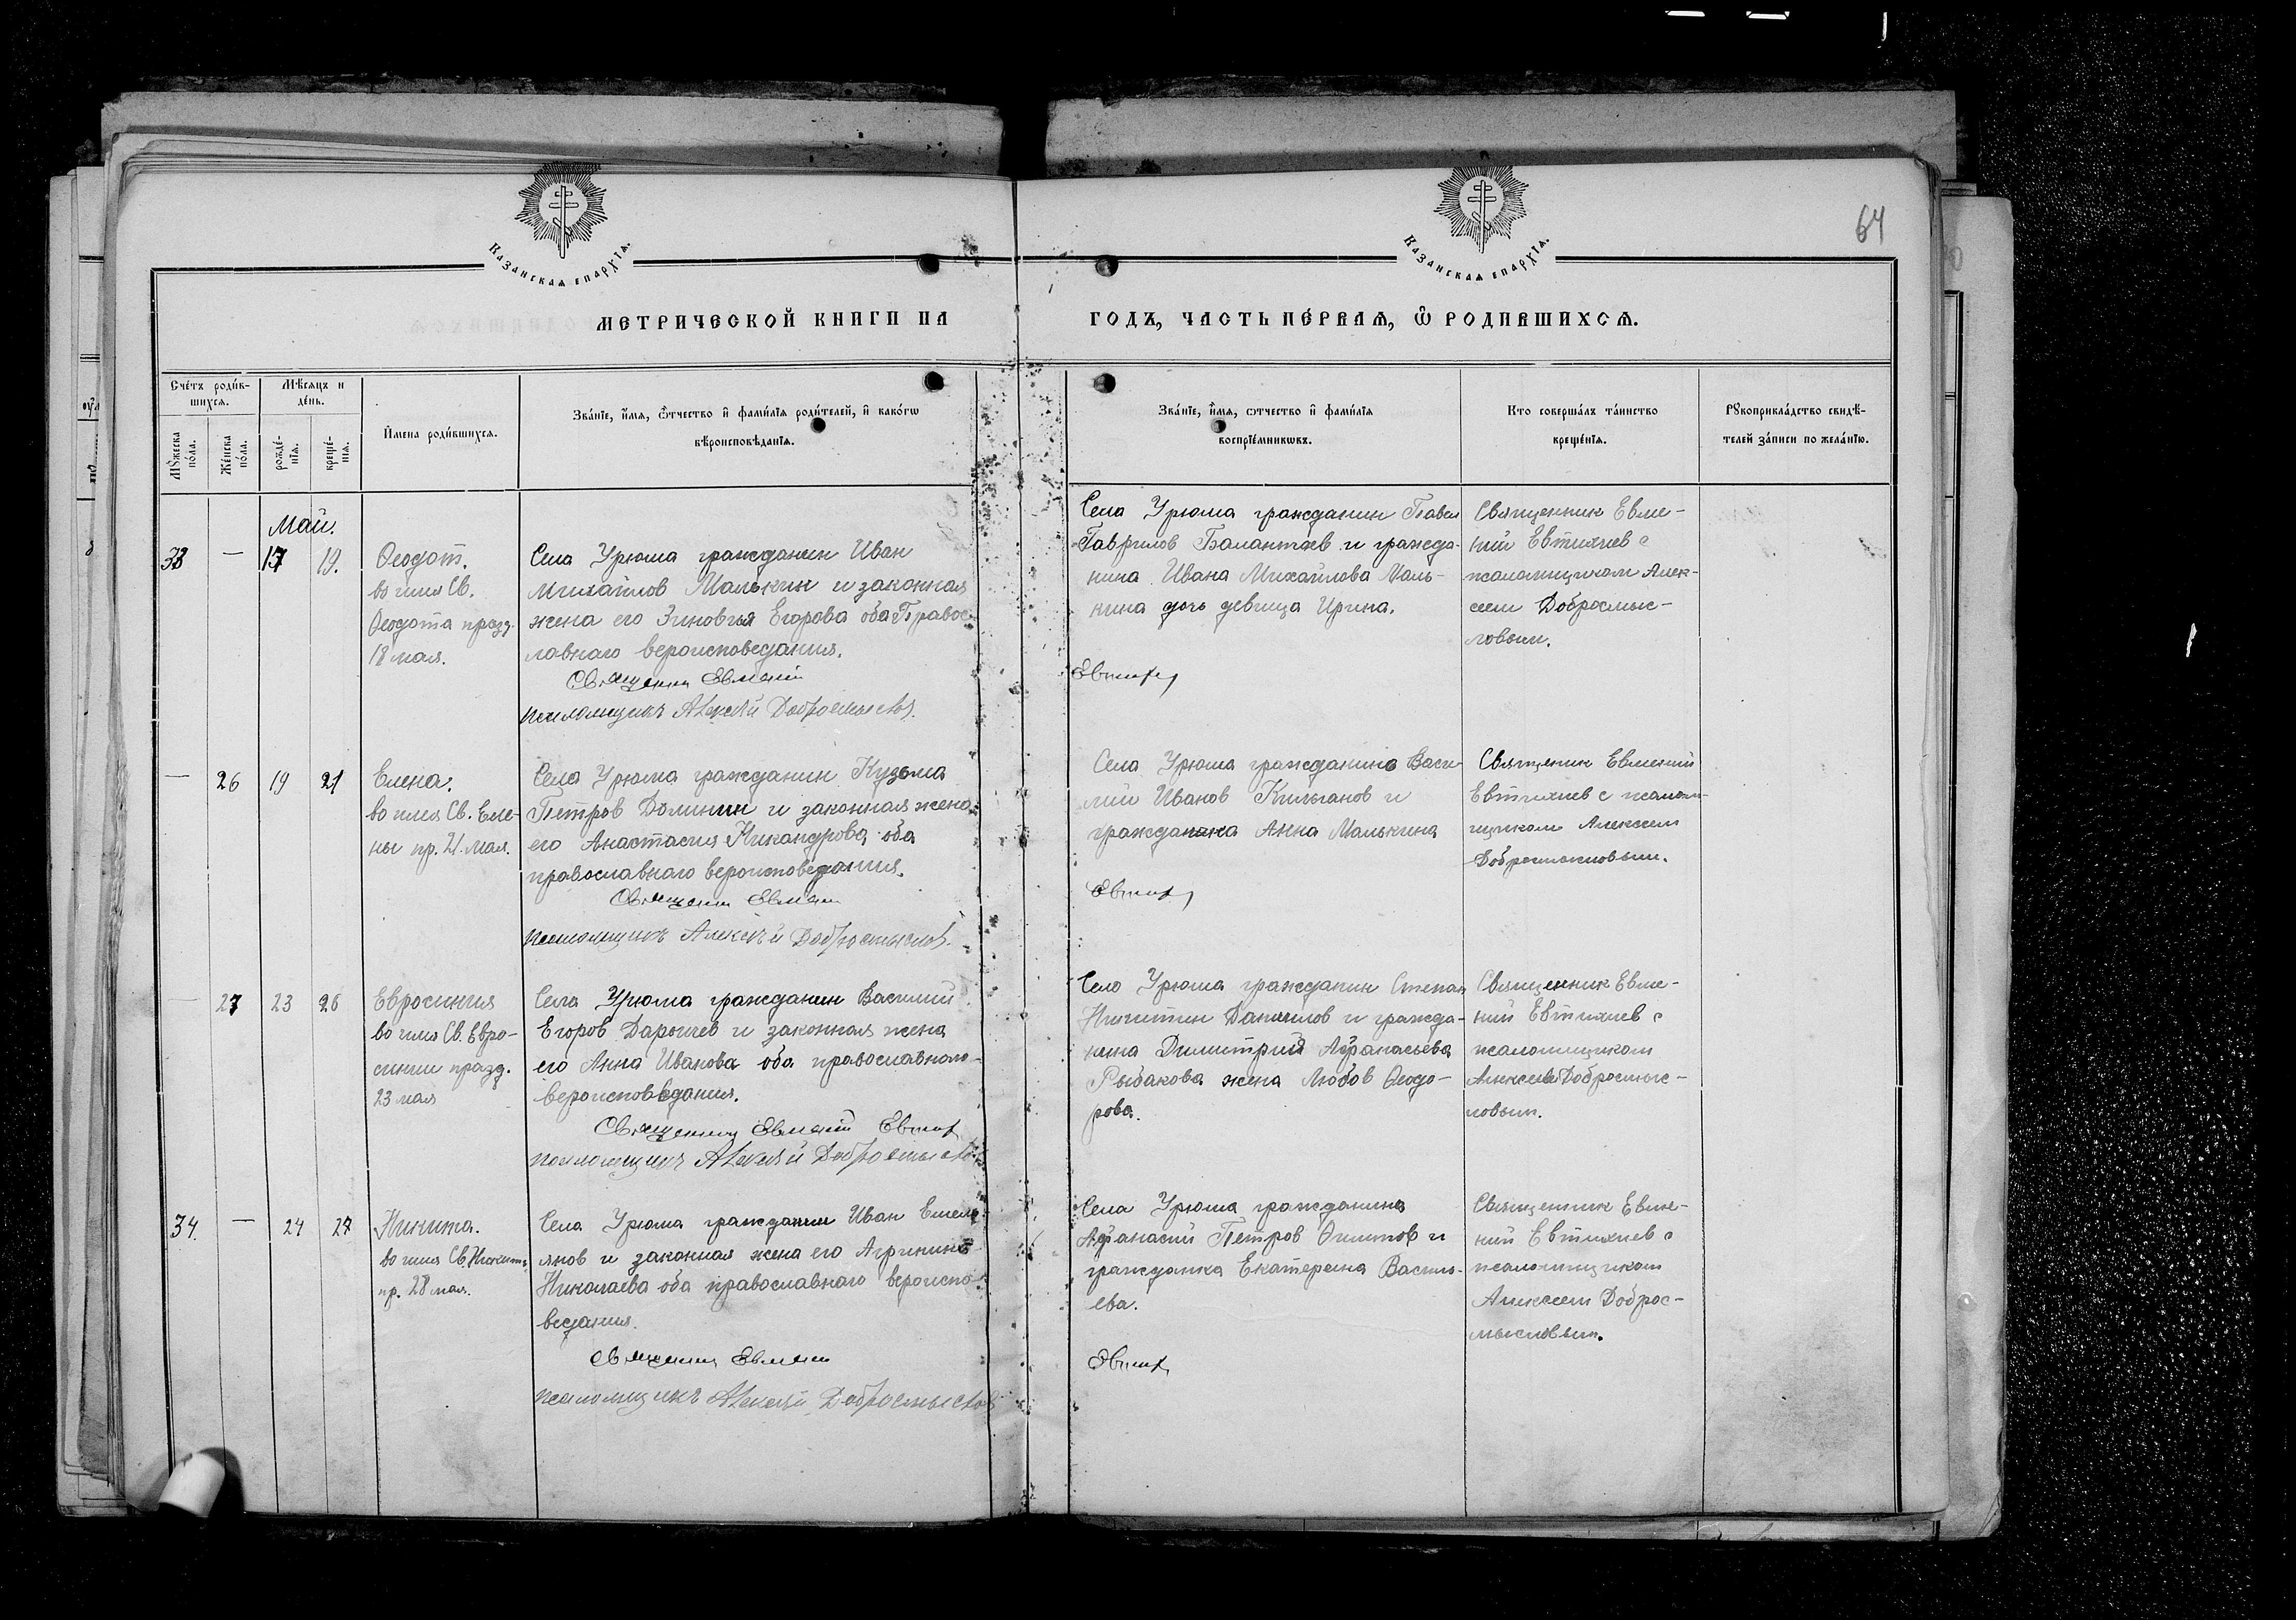 Казанская епархїѧ.
Казанская епархїѧ.
64
МЕТРИЧЕСКОЙ КНИГИ НА
ГОДЪ, ЧАСТЬ ПЕ́РВАѦ, Ѽ РОДИВШИХСѦ.
Сче́тъ роди́в-
шихсѧ.
Мѣ́сѧцъ и
де́нь.
Мꙋ́жеска
по́ла.
Же́нска
по́ла.
рожде́-
нїѧ.
креще́-
нїѧ.
И҆́мена роди́вшихсѧ.
Зва́нїе, и҆́мѧ, ѻ҆́тчество и҆ фами́лїѧ роди́телей, и҆ како́гѡ
вѣроисповѣ́данїѧ.
Зва́нїе, и҆́мѧ, ѻтчество и҆ фами́лїѧ
воспрїе́мникѡвъ.
Кто соверша́лъ та́инство
креще́нїѧ.
Рꙋкоприкла́дство свидѣ́-
телей за́писи по жела́нїю.
Май.
33 — 17 19.
Ѳеодот.
во имя Св.
Ѳеодота празд.
18 мая.
Села Урюма гражданин Иван
Михайлов Малькин и законная
жена его Зиновья Егорова оба Правос-
лавнаго вероисповедания.
Священник Евмений
псаломщикъ Алексѣй Добросмыслов.
Села Урюма гражданин Павел
Гаврилов Балантаев и гражда-
нина Ивана Михайлова Маль-
кина дочь девица Ирина.
Евтихиев
Священник Евме-
ний Евтихиев с
псаломщиком Алек-
сеем Добросмыс-
ловым.
— 26 19 21
Елена.
во имя Св. Еле-
ны пр. 21 мая.
Села Урюма гражданин Кузьма
Петров Долинин и законная жена
его Анастасия Никандрова оба
православнаго вероисповедания.
Священник Евмений
псаломщикъ Алексѣй Добросмыслов.
Села Урюма гражданина Васи-
лий Иванов Кильганов и
гражданка Анна Малькина
Евтихиев
Священник Евмений
Евтихиев с псалом-
щиком Алексеем
Добросмысловым.
— 27 23 26
Евросиния
во имя Св. Евро-
синии празд.
23 мая
Села Урюма гражданин Василий
Егоров Дарычев и законная жена
его Анна Иванова оба православнаго
вероисповедания.
Священник Евмений Евтихиев
псаломщикъ Алексѣй Добросмыслов.
Село Урюма гражданин Степан
Никитин Данилов и гражда-
нина Димитрий Афанасьева
Рыбакова жена Любов Ѳеодо-
рова.
Священник Евме-
ний Евтихиев с
псаломщиком
Алексеем Добросмыс-
ловым.
34. — 24 27
Никита.
во имя Св. Никиты
пр. 28 мая.
Села Урюма гражданин Иван Емель-
янов и законная жена его Агрипина
Николаева оба православнаго вероиспо-
ведания.
Священник Евмений
псаломщикъ Алексѣй Добросмыслов
Села Урюма гражданина
Афанасий Петров и
гражданка Екатерина Василь-
ева.
Евтихиев
Священник Евме-
ний Евтихиев с
псаломщиком
Алексеем Доброс-
мысловым.